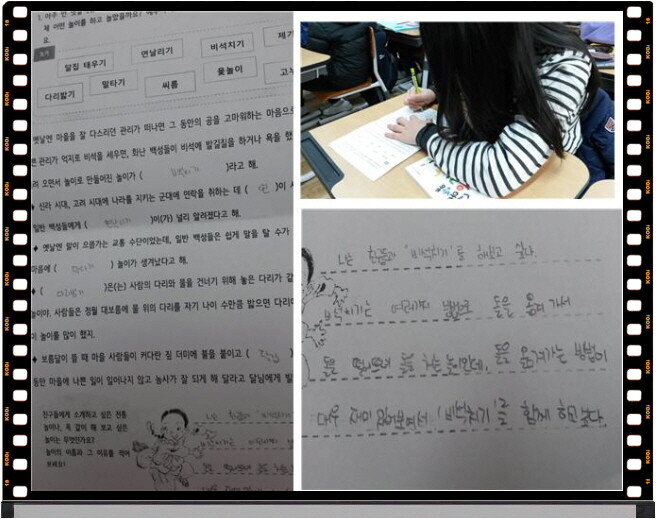 1. 아주 먼 옛날
째 어떤 놀이를 하고 놀았을까요?
요.
보기
달집 태우기
연날리기
비석치기
제기
다리밟기
말타기
씨름
윷놀이
고누
옛날엔 마을을 잘 다스리던 관리가 떠나면 그 동안의 공을 고마워하는 마음으로
관리가 억지로 비석을 세우면, 화난 백성들이 비석에 발길질을 하거나 욕을 했
오면서 놀이로 만들어진 놀이가 ( 비석치기 )라고 해.
◆ 신라 시대, 고려 시대에 나라를 지키는 군대에 연락을 취하는 데 ( 연 )이 사
일반 백성들에게 ( 연날리기 )이(가) 널리 알려졌다고 해.
◆ 옛날엔 말이 으뜸가는 교통 수단이었는데, 일반 백성들은 쉽게 말을 탈 수가
마음에 ( 말타기 ) 놀이가 생겨났다고 해.
◆ ( 다리밟기 )은(는) 사람의 다리와 물을 건너기 위해 놓은 다리가 같
놀이야. 사람들은 정월 대보름에 물 위의 다리를 자기 나이 수만큼 밟으면 다리
이 놀이를 많이 했지.
◆ 보름달이 뜰 때 마을 사람들이 커다란 짚 더미에 불을 붙이고 ( 달집
동안 마을에 나쁜 일이 일어나지 않고 농사가 잘 되게 해 달라고 달님에게 빌
친구들에게 소개하고 싶은 전통
놀이나, 꼭 같이 해 보고 싶은
놀이는 무엇인가요?
놀이의 이름과 그 이유를 적어
보세요!
나는 친구들과 '비석치기'를 해보고 싶다.
비석치기는 여러가지 방법으로 돌을 옮겨 가서
돌을 떨어뜨려 돌을 치는 놀이인데, 돌을 옮겨가는 방법이
매우 재미있어보여서 '비석치기'를 함께 하고싶다.